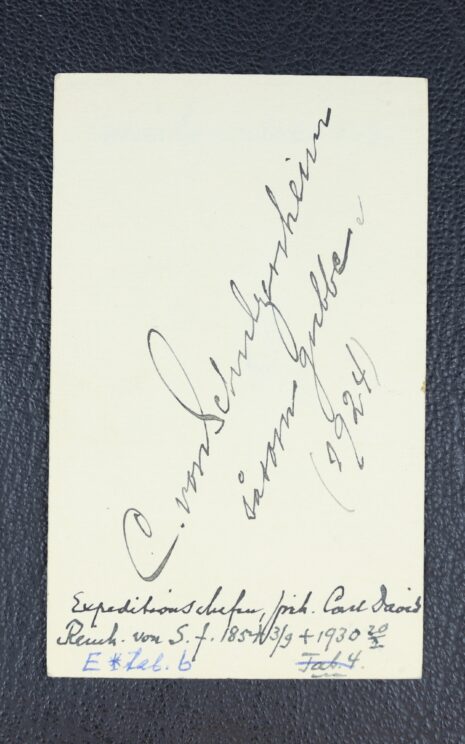 C. von Schulzenheim
såsom gubbe.
(1924)
Expeditionschefen, frih. Carl David
Reinh. von S. f. 1854 3/9 + 1930 20/2
E * Tab. b
Tab. 4.